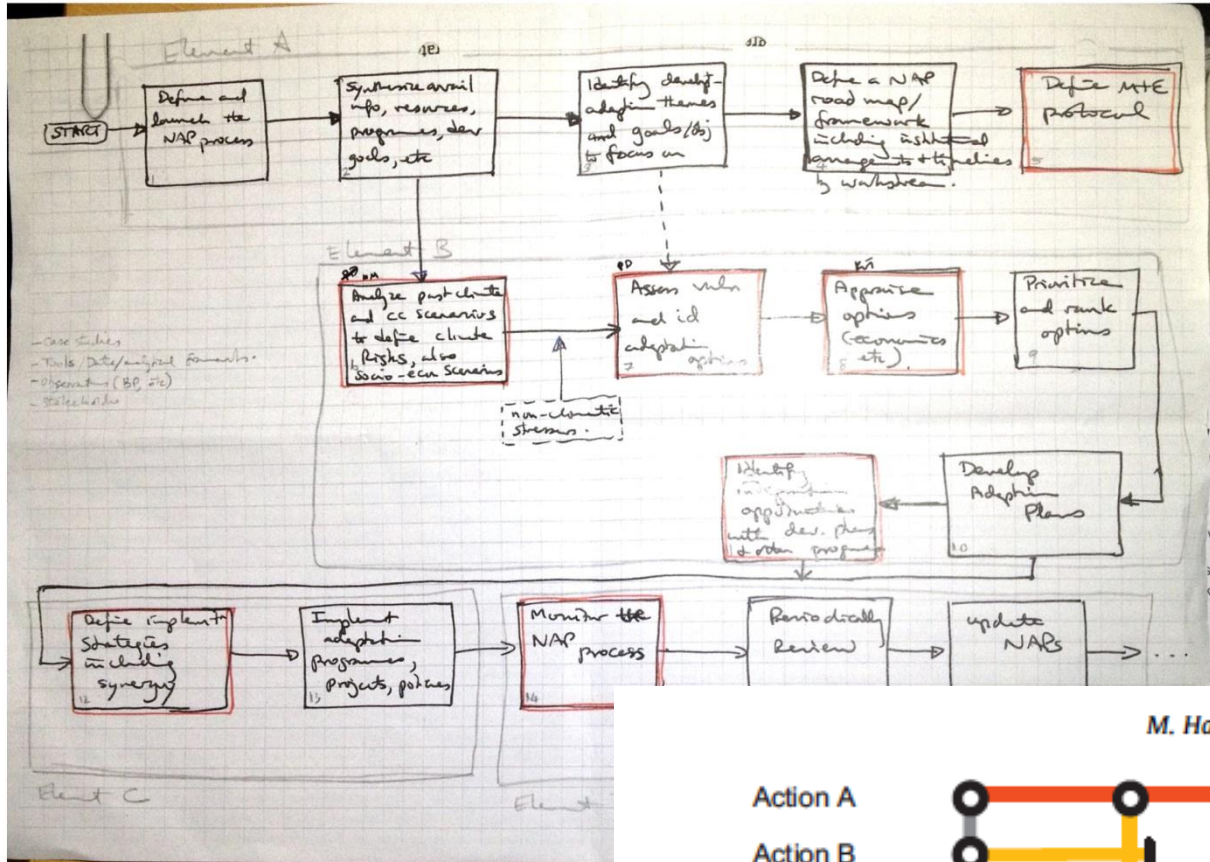 Element A
START
Define and
launch the
NAP process
1
Synthesize avail
info, resources,
programmes, dev
goals, etc
2
Identify
adaption themes
and goals/obj
to focus on
3
Define a NAP
road map/
framework
including
arrangents + timelines
by workstream.
4
Define M+E
protocol
5
Element B
Analyze past climate
and CC scenarios
to define climate
Risks, also
socio-econ scenarios
non-climatic
stressors.
PD
Assess vuln
and id
adaptation
options
7
Appraise
options
(economics
etc).
8
Prioritize
and rank
options
9
- Case studies
- Tools/Data/analytical
- Observations (BP, etc)
- Stakeholders
Develop
Adaption
Plans
10
Identify
integration
opportunities
with dev. plans
& other programes
Define
Strategies
including
synergy
12
Implement
adaptation
programmes,
projects, policies
13
Monitor the
NAP process
14
Periodically
Review
update
NAPs
...
Element C
Element
M. Ha
Action A
Action B